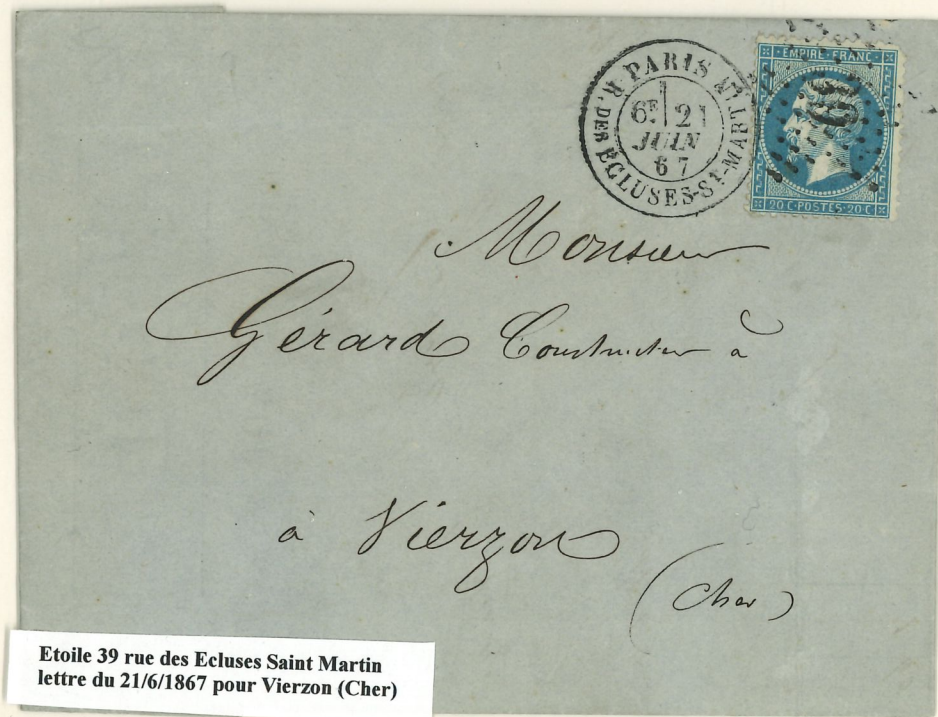 PARIS
R. DES ECLUSES-ST-MARTIN
6E 21
JUIN
67
EMPIRE FRANC
39
20 C POSTES 20 C
Monsieur
Gérard Constructeur à
à Vierzon
(Cher)
Etoile 39 rue des Ecluses Saint Martin
lettre du 21/6/1867 pour Vierzon (Cher)